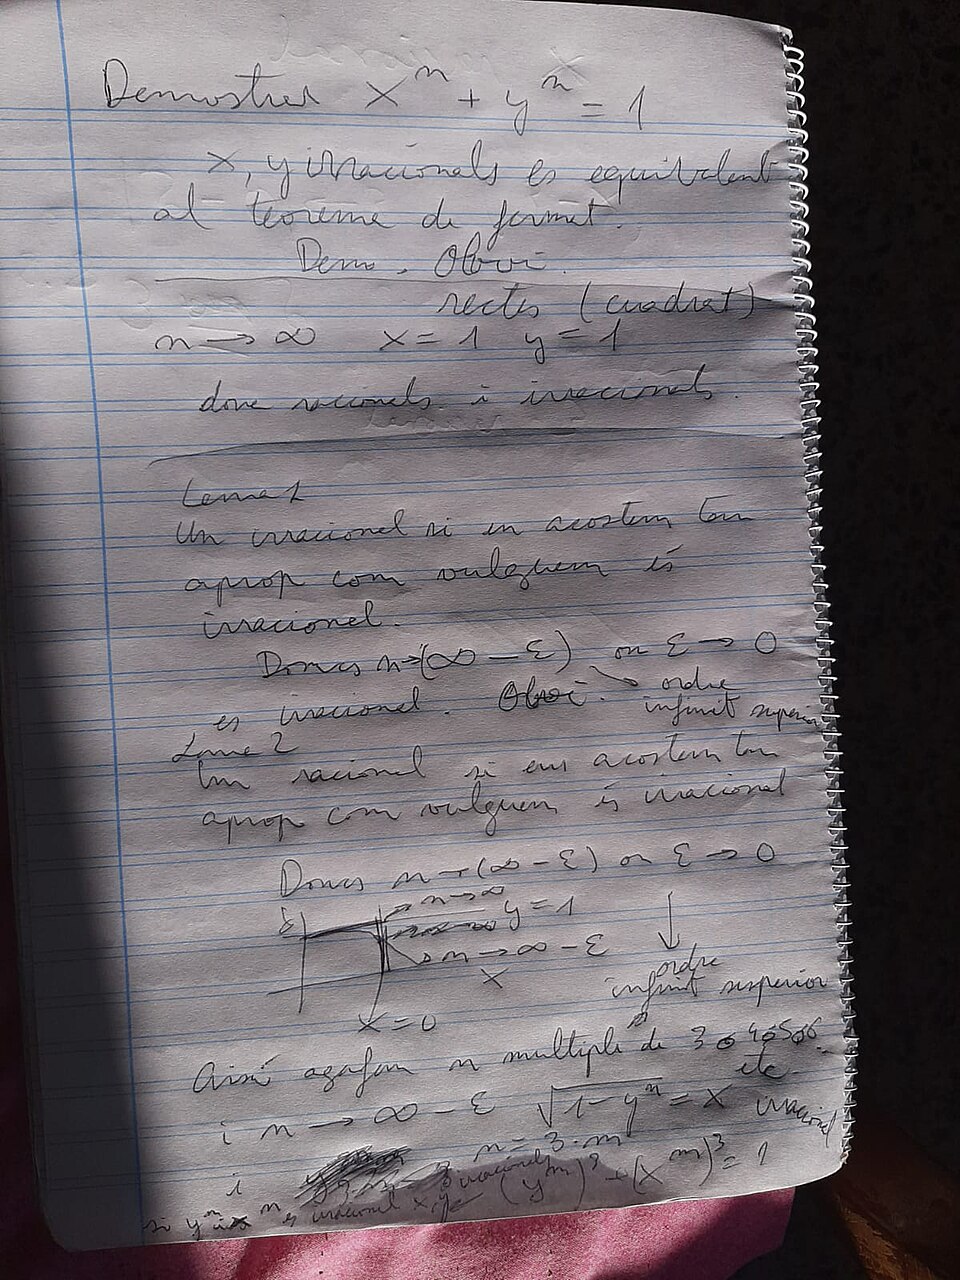 Demostrar x^n + y^n = 1
x, y irracionals es equivalent
al teorema de fermat.
Demo. Obvi.
rectes (cuadrat)
n → ∞ x = 1 y = 1
dona racionals i irracionals.
Lema 1
Un irracional si en acostem tan
aprop com vulguem és
irracional.
Doncs n→(∞ − ε) on ε → 0
es irracional. Obvi. ordre
infinit superior
Lema 2
Un racional si ens acostem tan
aprop com vulguem és irracional
Doncs n→(∞ − ε) on ε → 0
n → ∞
y = 1
n → ∞ − ε
x
ordre
infinit superior
x = 0
Així agafem n multiple de 3 o 4 o 5 o 6
etc.
i n → ∞ − ε √1 − y^n = x irracional
n = 3·m
i irracionals (y^m)^3 + (x^m)^3 = 1
si y^n es irracional x, y